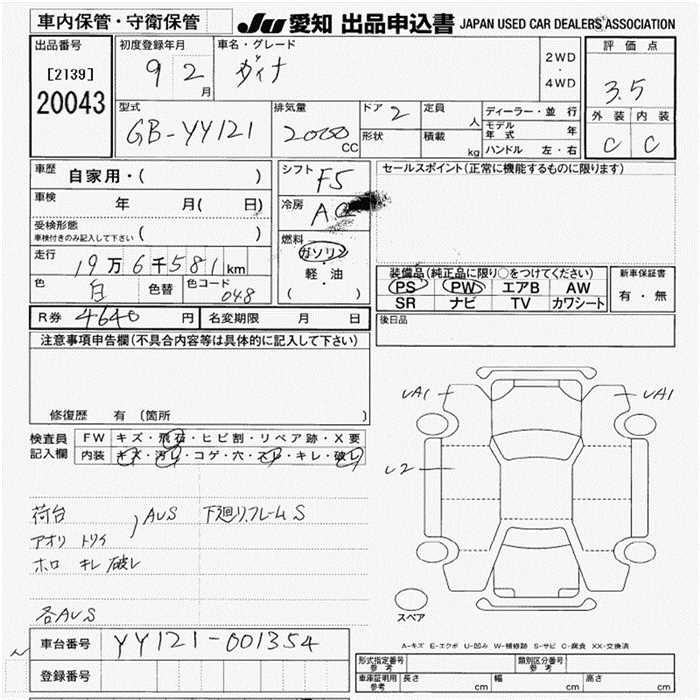 車内保管・守衛保管
JU 愛知 出品申込書 JAPAN USED CAR DEALERS' ASSOCIATION
出品番号
[2139]
20043
初度登録年月
9 2 月
車名・グレード
ダイナ
2WD
・
4WD
評価点
3.5
外装 内装
C C
型式
GB-YY121
排気量
2000 CC
ドア 2
形状
定員 人
積載 kg
ディーラー・並行
モデル年式 年
ハンドル 左・右
車歴 自家用・( )
車検 年 月( 日)
受検形態
車検付きのみ記入して下さい ( )
走行 19万6千581km
色 白 色替 色コード 048
シフト F5
冷房 AC
燃料
ガソリン
・
軽・油
( )
セールスポイント(正常に機能するものに限ります)
装備品(純正品に限り○をつけてください)
PS PW エアB AW
SR ナビ TV カワシート
新車保証書
有・無
後日品
R券 4640 円 名変期限 月 日
注意事項申告欄(不具合内容等は具体的に記入して下さい)
修復歴 有(箇所 )
検査員記入欄
FW キズ・飛石・ヒビ割・リペア跡・X要
内装 キズ・汚レ・コゲ・穴・スレ・キレ・破レ
荷台 , AUS 下廻リ.フレームS
アオリ トリイ
ホロ キレ 破レ
各AUS
UA1
UA1
U2
スペア
A-キズ E-エクボ U-凹み W-補修跡 S-サビ C-腐食 XX-交換済
車台番号 YY121-001354
登録番号
形式指定番号 参考
類別区分番号 参考
車庫証明用 参考 長さ cm 幅 cm 高さ cm